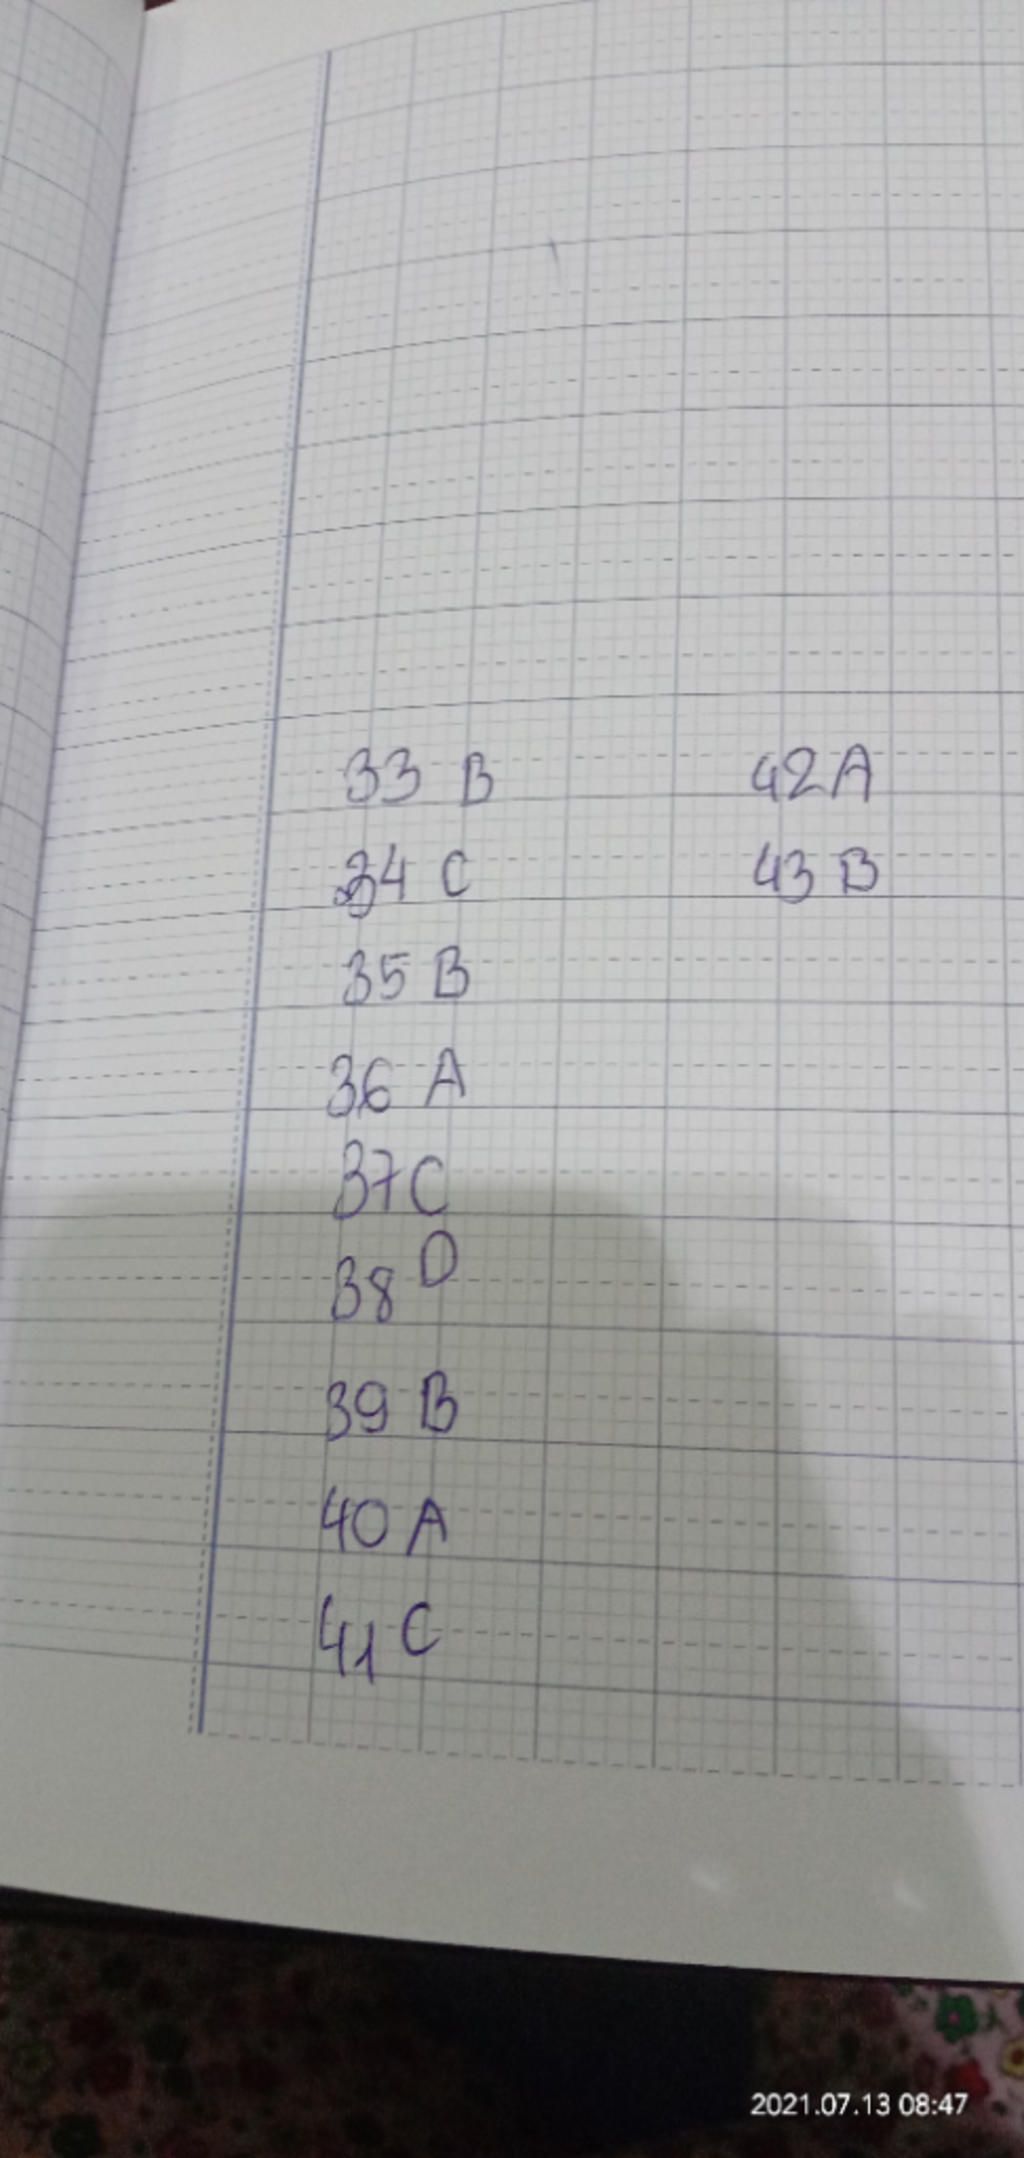 33 B
34 C
35 B
36 A
37 C
38 D
39 B
40 A
41 C
42 A
43 B
2021.07.13 08:47